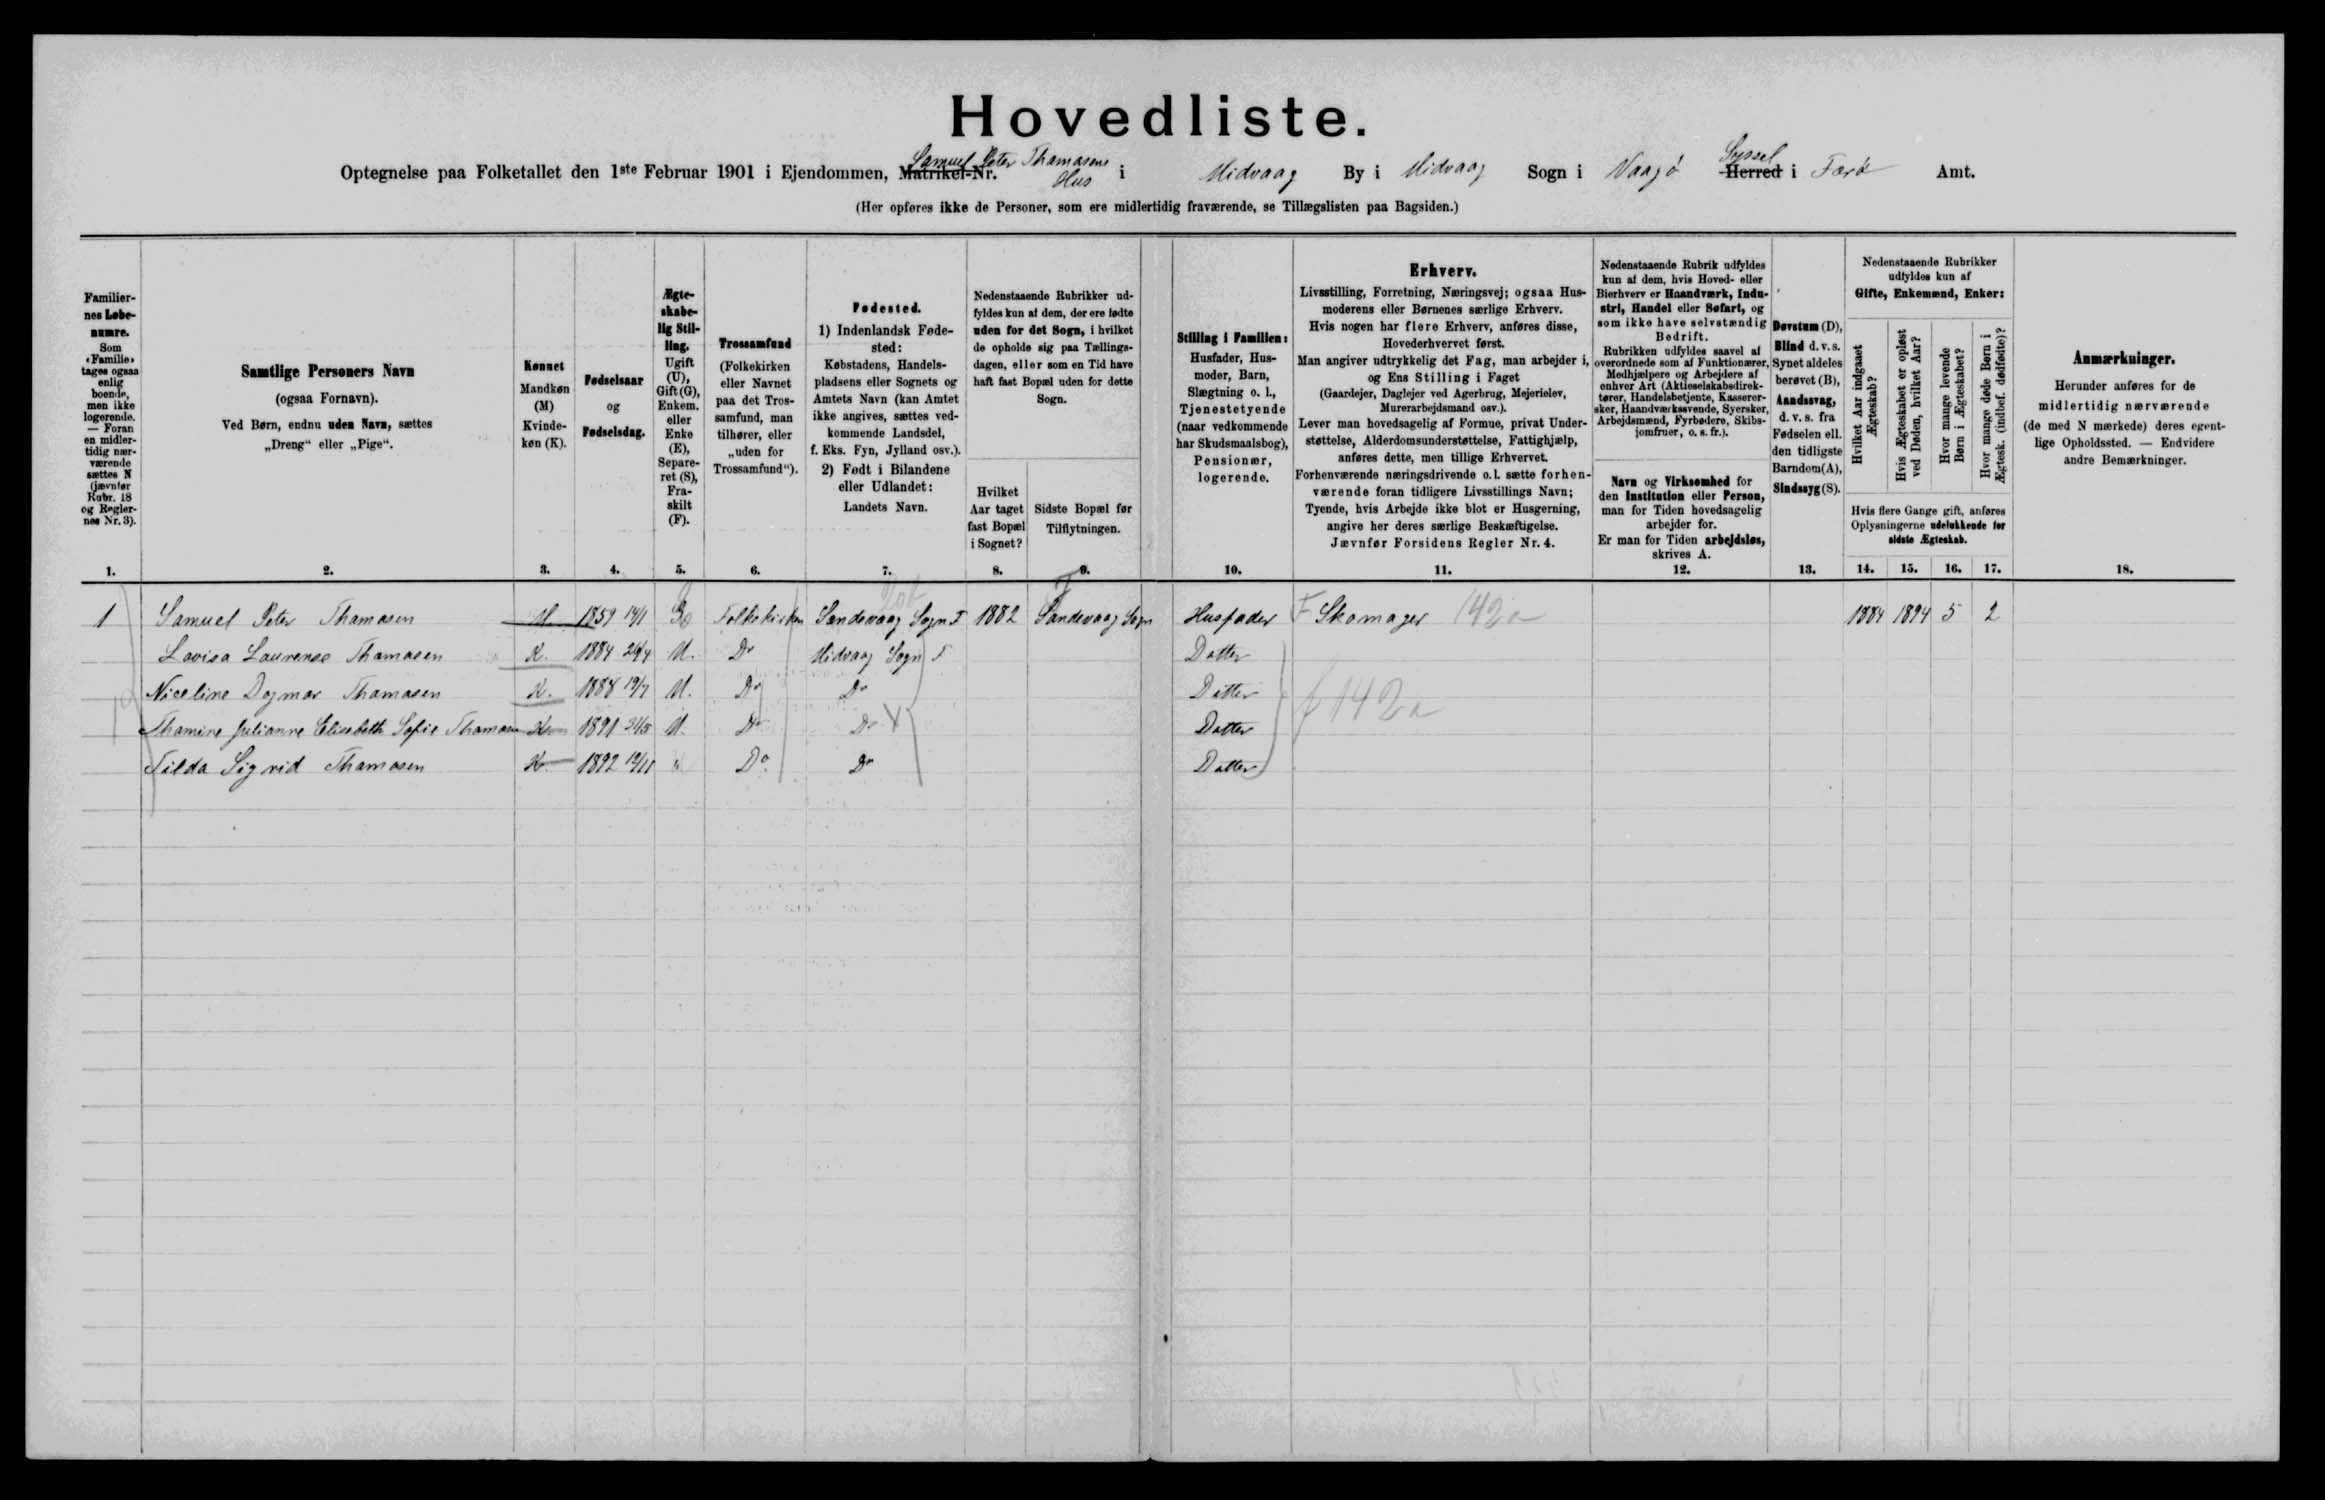 Hovedliste.
Optegnelse paa Folketallet den 1ste Februar 1901 i Ejendommen, Matrikel-Nr. Samuel Peter Thomasens Hus i Midvaag By i Midvaag Sogn i Vaagø Herred Syssel i Færø Amt.
(Her opføres ikke de Personer, som ere midlertidig fraværende, se Tillægslisten paa Bagsiden.)
Familiernes Løbenumre.
Som «Familie» tages ogsaa enlig boende, men ikke logerende. — Foran en midlertidig nærværende sættes N (jævnfør Rubr. 18 og Reglernes Nr. 3).
1.
Samtlige Personers Navn
(ogsaa Fornavn).
Ved Børn, endnu uden Navn, sættes
„Dreng“ eller „Pige“.
2.
Kønnet
Mandkøn (M)
Kvindekøn (K).
3.
Fødselsaar
og
Fødselsdag.
4.
Ægteskabelig Stilling.
Ugift (U), Gift (G), Enkem. eller Enke (E), Separeret (S), Fraskilt (F).
5.
Trossamfund
(Folkekirken eller Navnet paa det Trossamfund, man tilhører, eller „uden for Trossamfund“).
6.
Fødested.
1) Indenlandsk Fødested:
Købstadens, Handelspladsens eller Sognets og Amtets Navn (kan Amtet ikke angives, sættes vedkommende Landsdel, f. Eks. Fyn, Jylland osv.).
2) Født i Bilandene eller Udlandet:
Landets Navn.
7.
Nedenstaaende Rubrikker udfyldes kun af dem, der ere fødte uden for det Sogn, i hvilket de opholde sig paa Tællingsdagen, eller som en Tid have haft fast Bopæl uden for dette Sogn.
Hvilket Aar taget fast Bopæl i Sognet?
8.
Sidste Bopæl før Tilflytningen.
9.
Stilling i Familien:
Husfader, Husmoder, Barn, Slægtning o. l., Tjenestetyende (naar vedkommende har Skudsmaalsbog), Pensionær, logerende.
10.
Erhverv.
Livsstilling, Forretning, Næringsvej; ogsaa Husmoderens eller Børnenes særlige Erhverv.
Hvis nogen har flere Erhverv, anføres disse, Hovederhvervet først.
Man angiver udtrykkelig det Fag, man arbejder i, og Ens Stilling i Faget
(Gaardejer, Daglejer ved Agerbrug, Mejerielev, Murerarbejdsmand osv.).
Lever man hovedsagelig af Formue, privat Understøttelse, Alderdomsunderstøttelse, Fattighjælp, anføres dette, men tillige Erhvervet.
Forhenværende næringsdrivende o. l. sætte forhenværende foran tidligere Livsstillings Navn;
Tyende, hvis Arbejde ikke blot er Husgerning, angive her deres særlige Beskæftigelse.
Jævnfør Forsidens Regler Nr. 4.
11.
Nedenstaaende Rubrik udfyldes kun af dem, hvis Hoved- eller Bierhverv er Haandværk, Industri, Handel eller Søfart, og som ikke have selvstændig Bedrift.
Rubrikken udfyldes saavel af overordnede som af Funktionærer, Medhjælpere og Arbejdere af enhver Art (Aktieselskabsdirektører, Handelsbetjente, Kasserersker, Haandværkssvende, Syersker, Arbejdsmænd, Fyrbødere, Skibsjomfruer, o. s. fr.).
Navn og Virksomhed for den Institution eller Person, man for Tiden hovedsagelig arbejder for.
Er man for Tiden arbejdsløs, skrives A.
12.
Døvstum (D),
Blind d. v. s. Synet aldeles berøvet (B),
Aandssvag, d. v. s. fra Fødselen ell. den tidligste Barndom (A),
Sindssyg (S).
13.
Nedenstaaende Rubrikker udfyldes kun af
Gifte, Enkemænd, Enker:
Hvilket Aar indgaaet Ægteskab?
Hvis Ægteskabet er opløst ved Døden, hvilket Aar?
Hvor mange levende Børn i Ægteskabet?
Hvor mange døde Børn i Ægtesk. (indbef. dødfødte)?
Hvis flere Gange gift, anføres Oplysningerne udelukkende for sidste Ægteskab.
14. 15. 16. 17.
Anmærkninger.
Herunder anføres for de midlertidig nærværende (de med N mærkede) deres egentlige Opholdssted. — Endvidere andre Bemærkninger.
18.
1 Samuel Peter Thomasen M. 1859 14/1 E Folkekirken Sandevaag Sogn F 1882 Sandevaag Sogn Husfader F Skomager 142a 1884 1894 5 2
Lovisa Laurense Thomasen K. 1884 U. Do Midvaag Sogn F Datter
Niceline Dagmar Thomasen K. 1888 19/7 U. Do Do Datter f 142a
Thomine Julianne Elisabeth Sofie Thomasen K 1891 U. Do Do Datter
Tilda Sigrid Thomasen K. 1892 " Do Do Datter